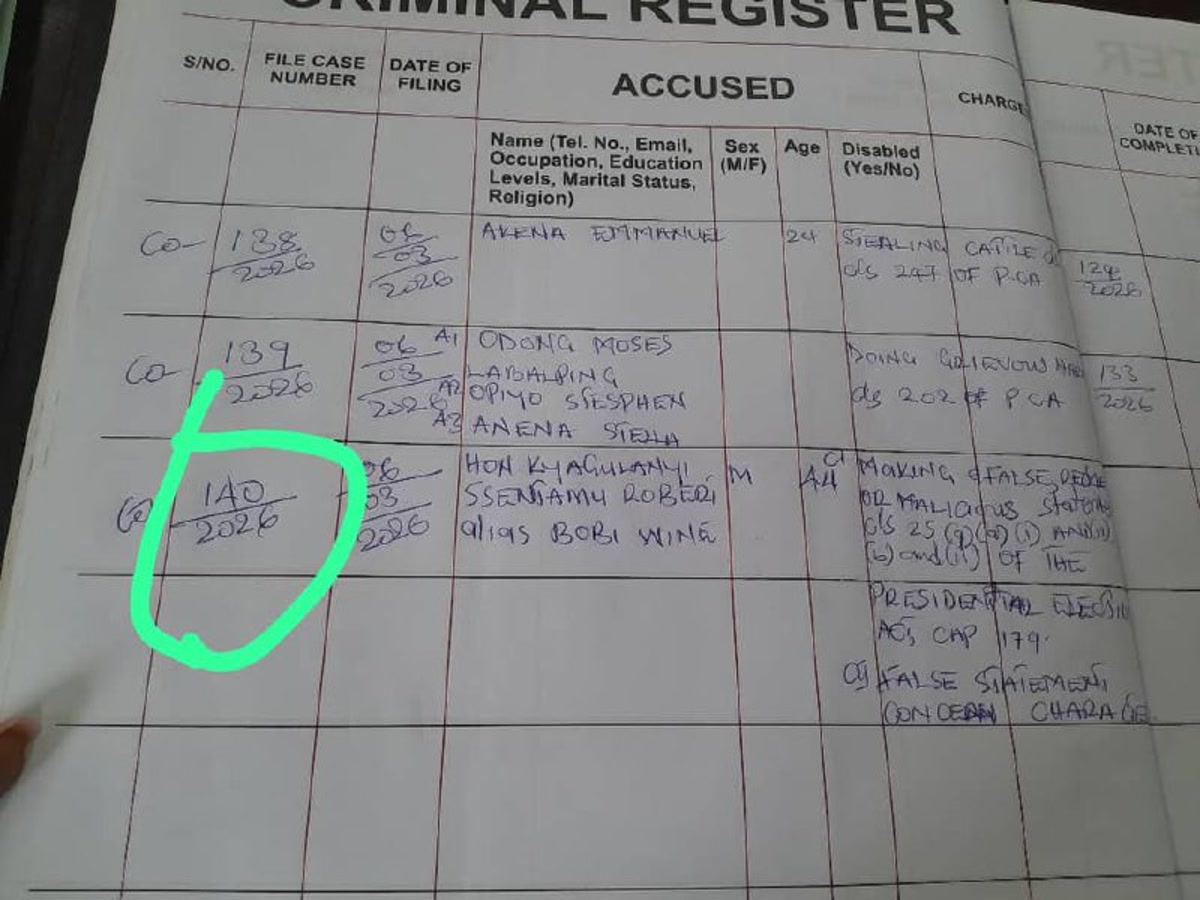 CRIMINAL REGISTER
S/NO.
FILE CASE
NUMBER
DATE OF
FILING
ACCUSED
CHARGE
DATE OF
COMPLETI
Name (Tel. No., Email,
Occupation, Education
Levels, Marital Status,
Religion)
Sex
(M/F)
Age
Disabled
(Yes/No)
CO- 138
2026
06
03
2026
AKENA EMMANUEL
24
STEALING CATTLE
c/s 247 OF P.CA
124
2026
CO- 139
2026
06
03
2026
A1 ODONG MOSES
LABALPING
A2 OPIYO STESPHEN
A3 ANENA STELLA
DOING GRIEVOUS
c/s 202 OF PCA
133
2026
CO 140
2026
06
03
2026
HON KYAGULANYI
SSENTAMU ROBERT
alias BOBI WINE
M
44
MAKING FALSE
OR MALICIOUS Statem
c/s 25 (a) (i) AND (ii)
(b) and (ii) OF THE
PRESIDENTIAL ELECTIO
ACT, CAP 179.
FALSE STATEMENT
CONCERN CHARACTE